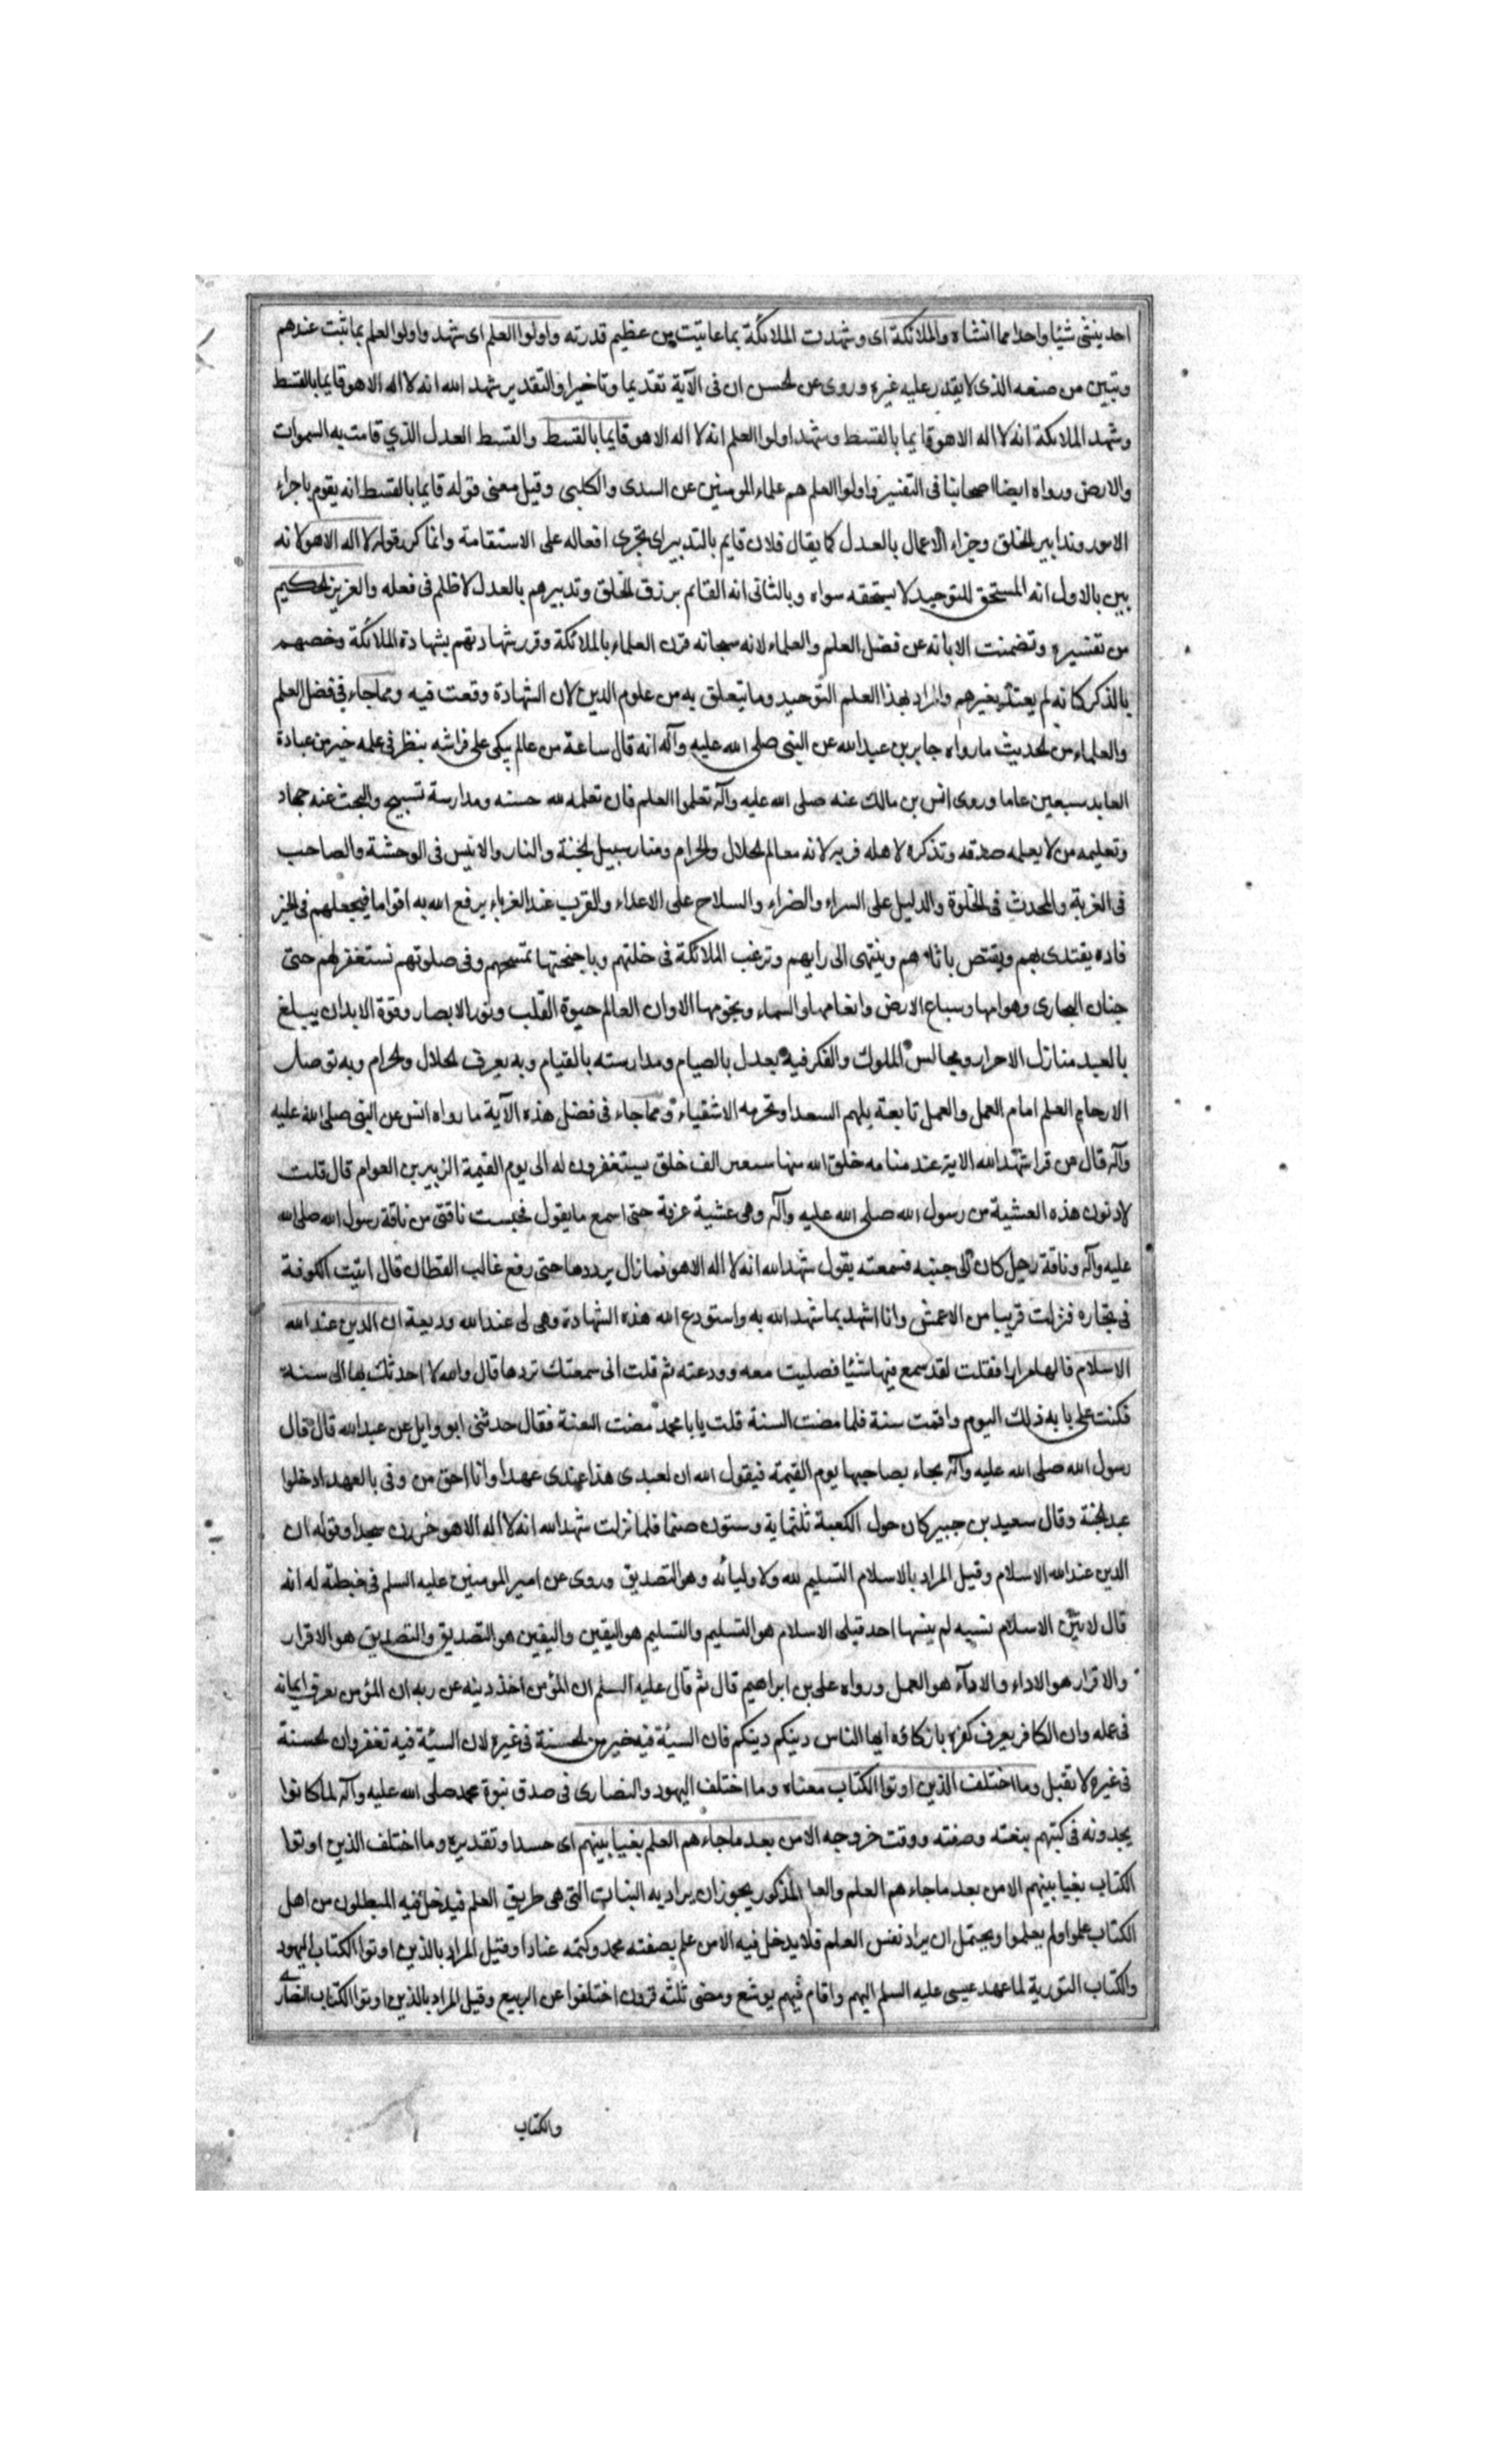 احد ينشئ شيئا واحدا مما انشاه والملائكة اى وشهدت الملائكة بما عاينت من عظيم قدرته واولوا العلم اى شهد واولوا العلم بما ثبت عندهم
وتبين من صنعه الذى لا يقدر عليه غيره وروى عن لحسن ان فى الآية تقديما وتاخيرا والتقدير شهد الله انه لا اله الا هو قايما بالقسط
وشهد الملائكة انه لا اله الا هو قايما بالقسط وشهد اولوا العلم انه لا اله الا هو قايما بالقسط والقسط العدل الذي قامت به السموات
والارض ورواه ايضا اصحابنا فى التفسير واولوا العلم هم علماء المومنين عن السدى والكلبى وقيل معنى قوله قايما بالقسط انه يقوم باجراء
الامور وتدابير الخلق وجزاء الاعمال بالعدل كما يقال فلان قايم بالتدبير اى يجرى افعاله على الاستقامة وانما كرر قوله لا اله الا هو لانه
بين بالاول انه المستحق للتوحيد لا يستحقه سواه وبالثانى انه القائم برزق الخلق وتدبيرهم بالعدل لا ظلم فى فعله والعزيز لحكيم
من تفسيره وتضمنت الابانه عن فضل العلم والعلماء لانه سبحانه قرن العلماء بالملائكة وقرر شهادتهم بشهادة الملائكة وخصهم
بالذكر كانه لم يعتد بغيرهم والمراد بهذا العلم التوحيد وما يتعلق به من علوم الدين لان الشهادة وقعت فيه ومما جاء فى فضل العلم
والعلماء من لحديث ما رواه جابر بن عبد الله عن النبى صلى الله عليه وآله انه قال ساعة من عالم يتكى على فراشه ينظر فى علمه خير من عبادة
العابد سبعين عاما وروى انس بن مالك عنه صلى الله عليه وآله تعلموا العلم فان تعلمه لله حسنه ومدارسة تسبيح والبحث عنه جهاد
وتعليمه من لا يعلمه صدقه وتذكره لاهله قربه لانه معالم لحلال والحرام ومنار سبيل لجنة والنار والانيس فى الوحشة والصاحب
فى الغربة والمحدث فى الخلوة والدليل على السراء والضراء والسلاح على الاعداء والقرب عند الغرباء يرفع الله به اقواما فيجعلهم فى الخير
قاده يقتدى بهم ويقتص باثارهم وينتهى الى رايهم وترغب الملائكة فى خلتهم وباجنحتها تمسحهم وفى صلوتهم تستغفر لهم حتى
حيتان البحارى وهوامها وسباع الارض وانعامها والسماء ونجومها الا وان العالم حيوة القلب ونور الابصار وقوة الابدان يبلغ
بالعبد منازل الاحرار ومجالس الملوك والفكر فيه يعدل بالصيام ومدارسته بالقيام وبه يعرف لحلال ولحرام وبه توصل
الارحام العلم امام العمل والعمل تابعه يلهم السعدا وتحرمه الاشقياء ومما جاء فى فضل هذه الآية ما رواه انس عن النبى صلى الله عليه
وآله قال من قرا شهد الله الاية عند منامه خلق الله منها سبعين الف خلق يستغفرون له الى يوم القيمة الزبير بن العوام قال قلت
لادنون هذه العشية من رسول الله صلى الله عليه وآله وهى عشية عرفة حتى اسمع ما يقول فحبست ناقتى من ناقة رسول الله صلى الله
عليه وآله وناقة رجل كان الى جنبه فسمعته يقول شهد الله انه لا اله الا هو فما زال يرددها حتى رفع غالب القطان قال اتيت الكوفة
فى تجاره فنزلت قريبا من الاعمش وانا اشهد بما شهد الله به واستودع الله هذه الشهادة وهى لى عند الله وديعة ان الدين عند الله
الاسلام قالها مرارا فقلت لقد سمع فيها شيئا فصليت معه وودعته ثم قلت انى سمعتك تردها قال والله لا احدثك بها الى سنة
فكنت على بابه ذلك اليوم واقمت سنة فلما مضت السنة قلت يابا محمد مضت السنة فقال حدثنى ابو وايل عن عبد الله قال قال
رسول الله صلى الله عليه وآله يجاء بصاحبها يوم القيمة فيقول الله ان لعبدى هذا عندى عهدا وانا احق من وفى بالعهد ادخلوا
عبد لجنة وقال سعيد بن جبير كان حول الكعبة ثلثماية وستون صنما فلما نزلت شهد الله انه لا اله الا هو خررن سجدا وقوله ان
الدين عند الله الاسلام وقيل المراد بالاسلام التسليم لله ولاوليائه وهو التصديق وروى عن امير المومنين عليه السلم فى خطبة له انه
قال لانسبن الاسلام نسبه لم ينسبها احد قبلى الاسلام هو التسليم والتسليم هو اليقين واليقين هو التصديق والتصديق هو الاقرار
والاقرار هو الاداء والاداء هو العمل ورواه على بن ابراهيم قال ثم قال عليه السلم ان المؤمن اخذ دينه عن ربه ان المؤمن يعرف ايمانه
فى عمله وان الكافر يعرف كفره بانكاره ايها الناس دينكم دينكم فان السيئة فيه خير من لحسنة فى غيره لان السيئة فيه تغفر وان لحسنة
فى غيره لا تقبل وما اختلف الذين اوتوا الكتاب معناه وما اختلف اليهود والنصارى فى صدق نبوة محمد صلى الله عليه وآله لما كانوا
يجدونه فى كتبهم بنعته وصفته ووقت خروجه الا من بعد ما جاءهم العلم بغيا بينهم اى حسدا وتقديره وما اختلف الذين اوتوا
الكتاب بغيا بينهم الا من بعد ما جاءهم العلم والعلم المذكور يجوز ان يراد به البينات التى هى طريق العلم فيدخل فيه المبطلون من اهل
الكتاب علموا او لم يعلموا ويحتمل ان يراد نفس العلم فلا يدخل فيه الا من علم بصفته محمد وكتمه عنادا وقيل المراد بالذين اوتوا الكتاب اليهود
والكتاب التورية لما عهد عيسى عليه السلم اليهم واقام فيهم يوشع ومضى ثلثه قرون اختلفوا عن الربيع وقيل المراد بالذين اوتوا الكتاب النصارى
والكتاب